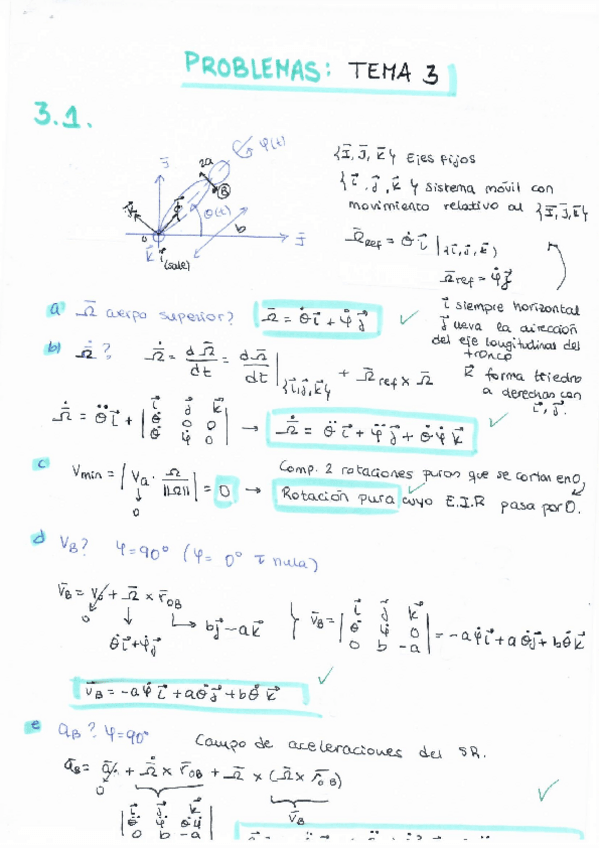 PROBLEMAS: TEMA 3
3.1.
φ(t)
J⃗
2a
B
θ(t)
b
k⃗
j⃗
o
K⃗ i⃗
(sale)
J⃗
{I⃗, J⃗, K⃗} Ejes fijos
{i⃗, j⃗, k⃗} sistema móvil con
movimiento relativo al {I⃗, J⃗, K⃗}
Ω̄ref = θ̇ i⃗ |{i⃗, j⃗, k⃗}
Ω̄ref = φ̇ j⃗
i⃗ siempre horizontal
j⃗ lleva la dirección
del eje longitudinal del
tronco
k⃗ forma triedro
a derechas con
i⃗, j⃗.
a Ω̄ cuerpo superior? Ω̄ = θ̇ i⃗ + φ̇ j⃗
b) Ω̄̇ ? Ω̄̇ = dΩ̄/dt = dΩ̄/dt |{i⃗, j⃗, k⃗} + Ω̄ref x Ω̄
Ω̄̇ = θ̈ i⃗ + | i⃗ j⃗ k⃗ ; θ̇ 0 0 ; θ̇ φ̇ 0 | → Ω̄̇ = θ̈ i⃗ + φ̈ j⃗ + θ̇ φ̇ k⃗
c Vmin = | Va · Ω/||Ω|| | = 0 → Comp. 2 rotaciones puras que se cortan en O,
0
Rotación pura cuyo E.I.R pasa por O.
d VB? φ=90° (φ= 0° τ nula)
v̄B = v̄o + Ω̄ x r̄OB
0
θ̇ i⃗ + φ̇ j⃗
b j⃗ - a k⃗
v̄B = | i⃗ j⃗ k⃗ ; θ̇ φ̇ 0 ; 0 b -a | = -a φ̇ i⃗ + a θ̇ j⃗ + b θ̇ k⃗
v̄B = -a φ̇ i⃗ + a θ̇ j⃗ + b θ̇ k⃗
e aB? φ=90° Campo de aceleraciones del SR.
āB = āo + Ω̄̇ x r̄OB + Ω̄ x (Ω̄ x r̄OB)
0
v̄B
| i⃗ j⃗ k⃗ ; θ̈ φ̈ θ̇φ̇ ; 0 b -a |